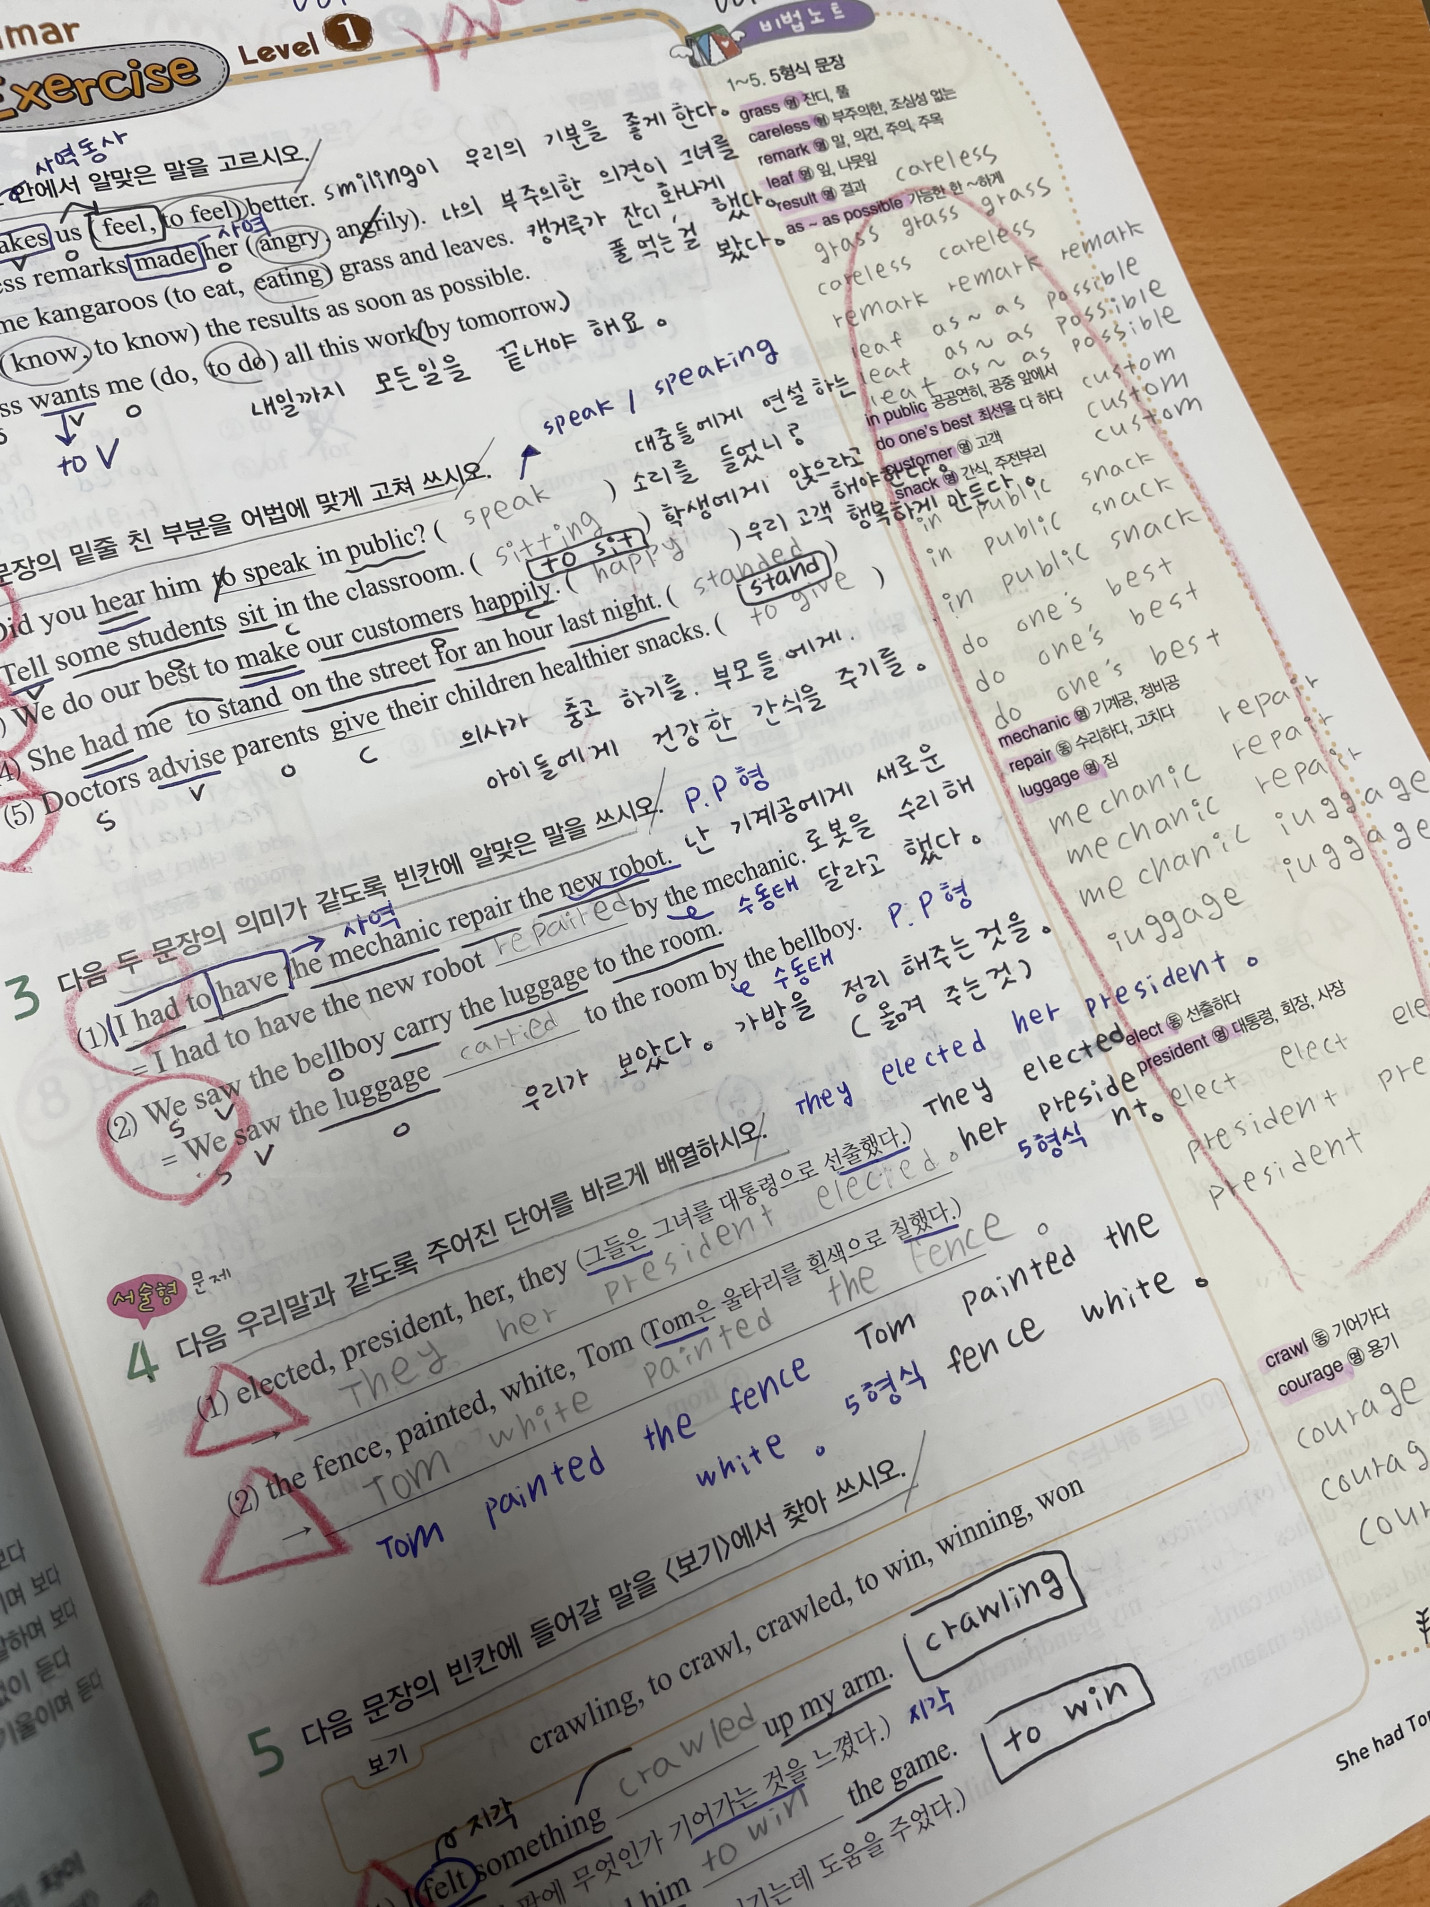 mar
Exercise
Level 1
사역동사
안에서 알맞은 말을 고르시오.
akes us (feel, to feel) better. smiling이 우리의 기분을 좋게 한다。
사역
ess remarks made her (angry, angrily). 나의 부주의한 의견이 그녀를 화나게 했다。
me kangaroos (to eat, eating) grass and leaves. 캥거루가 잔디, 풀 먹는걸 봤다。
(know, to know) the results as soon as possible.
ss wants me (do, to do) all this work (by tomorrow.)
V O
to V
내일까지 모든일을 끝내야 해요。
speak / speaking
문장의 밑줄 친 부분을 어법에 맞게 고쳐 쓰시오.
Did you hear him to speak in public? ( speak ) 대중들에게 연설 하는 소리를 들었니?
Tell some students sit in the classroom. ( sitting ) 학생에게 앉으라고 해야한다。
to sit
We do our best to make our customers happily. ( happy ) 우리 고객 행복하게 만든다。
4) She had me to stand on the street for an hour last night. ( standed )
stand
(5) Doctors advise parents give their children healthier snacks. ( to give )
S V O C
의사가 충고 하기를. 부모들에게.
아이들에게 건강한 간식을 주기를。
3 다음 두 문장의 의미가 같도록 빈칸에 알맞은 말을 쓰시오. P.P형
사역
(1) I had to have the mechanic repair the new robot. 난 기계공에게 새로운 로봇을 수리해 달라고 했다。
= I had to have the new robot repaired by the mechanic.
수동태
(2) We saw the bellboy carry the luggage to the room. P.P형
S V O
= We saw the luggage carried to the room by the bellboy.
S V O
수동태
우리가 보았다。 가방을 정리 해주는것을。
(옮겨 주는것)
서술형 문제
4 다음 우리말과 같도록 주어진 단어를 바르게 배열하시오. They elected her president。
(1) elected, president, her, they (그들은 그녀를 대통령으로 선출했다.) They elected her president。
→ They her president elected。
5형식
(2) the fence, painted, white, Tom (Tom은 울타리를 흰색으로 칠했다.)
→ Tom white painted the fence。
Tom painted the fence white。
5형식
Tom painted the fence white。
5 다음 문장의 빈칸에 들어갈 말을 〈보기〉에서 찾아 쓰시오.
보기
crawling, to crawl, crawled, to win, winning, won
지각
I felt something crawled up my arm. crawling
팔에 무엇인가 기어가는 것을 느꼈다.) 지각
him to win the game. to win
기는데 도움을 주었다.)
비법노트
1~5. 5형식 문장
grass 명 잔디, 풀
careless 형 부주의한, 조심성 없는
remark 명 말, 의견, 주의, 주목
leaf 명 잎, 나뭇잎
result 명 결과
as ~ as possible 가능한 한 ~하게
careless
grass grass grass
careless careless
remark remark remark
leaf as~as possible
leaf as~as possible
leat as~as possible
in public 공공연히, 공중 앞에서
do one's best 최선을 다 하다
customer 명 고객
snack 명 간식, 주전부리
custom
custom
custom
in public snack
in public snack
in public snack
do one's best
do one's best
do one's best
mechanic 명 기계공, 정비공
repair 동 수리하다, 고치다
luggage 명 짐
mechanic repair
mechanic repair
mechanic repair
iuggage iuggage
iuggage
elect 동 선출하다
president 명 대통령, 회장, 사장
elect elect ele
president pre
president
crawl 동 기어가다
courage 명 용기
courage
courag
cour
She had To
보다
며 보다
말하며 보다
없이 듣다
기울이며 듣다